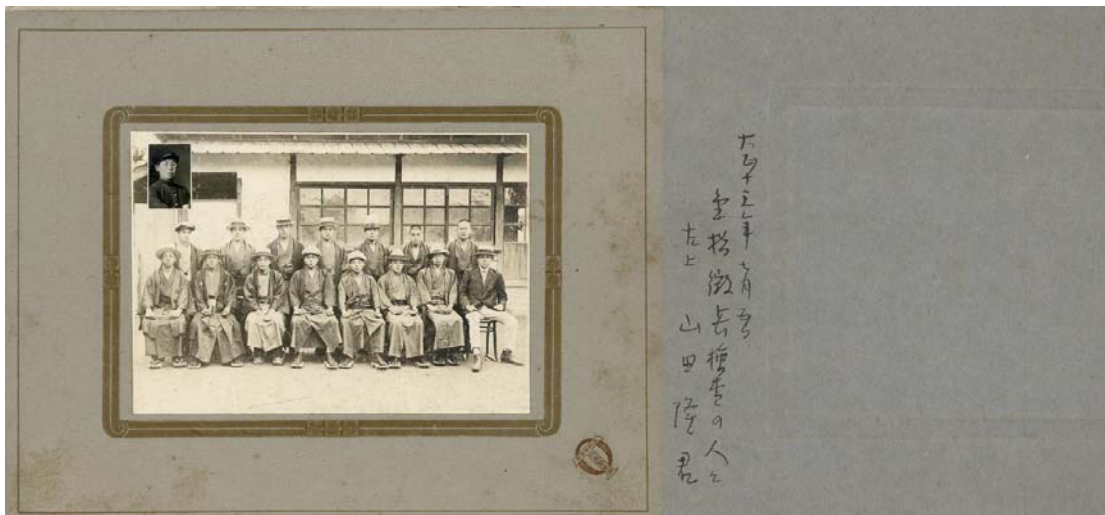 大正十三年七月五日
金松徴兵検査の人々
左上 山田隆君